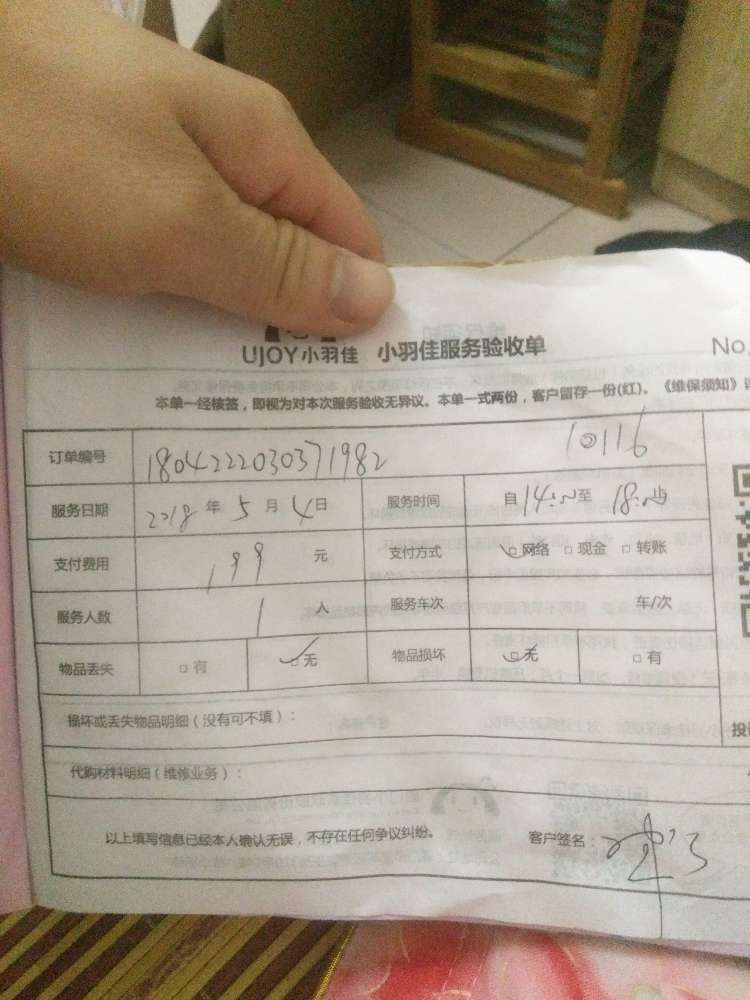 UJOY小羽佳 小羽佳服务验收单 No.
本单一经核签，即视为对本次服务验收无异议。本单一式两份，客户留存一份(红)。《维保须知》
订单编号 1804222030371982 10116
服务日期 2018年 5月 4日 服务时间 自14:~至 18:~止
支付费用 199 元 支付方式 网络 现金 转账
服务人数 1 人 服务车次 车/次
物品丢失 有 无 物品损坏 无 有
损坏或丢失物品明细（没有可不填）：
投
代购材料明细（维修业务）：
以上填写信息已经本人确认无误，不存在任何争议纠纷。 客户签名：